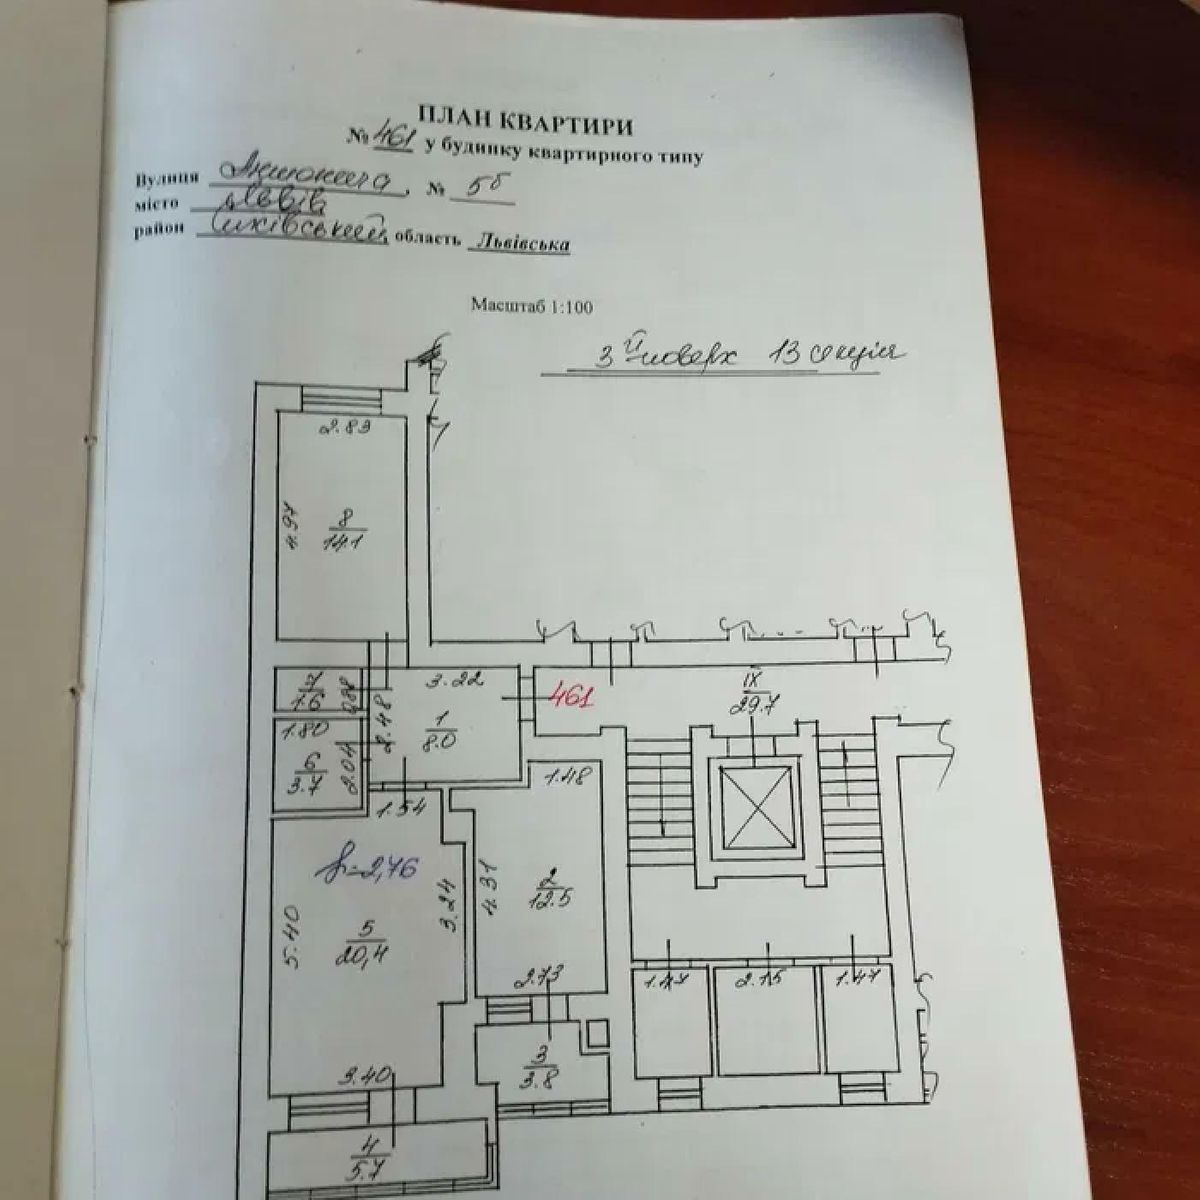 ПЛАН КВАРТИРИ
№ 461 у будинку квартирного типу
Вулиця , № 5б
місто Львів
район Сихівський, область Львівська
Масштаб 1:100
3й поверх 13 секція
2.83
4.97
8
14.1
7
1.6
0.88
2.48
3.22
461
IX
29.7
1
8.0
1.80
6
3.7
2.04
1.54
1.48
h=2,76
5.40
5
20,4
3.24
4.31
2
12.5
2.73
1.47
2.15
1.47
3
3.8
3.40
4
5.7